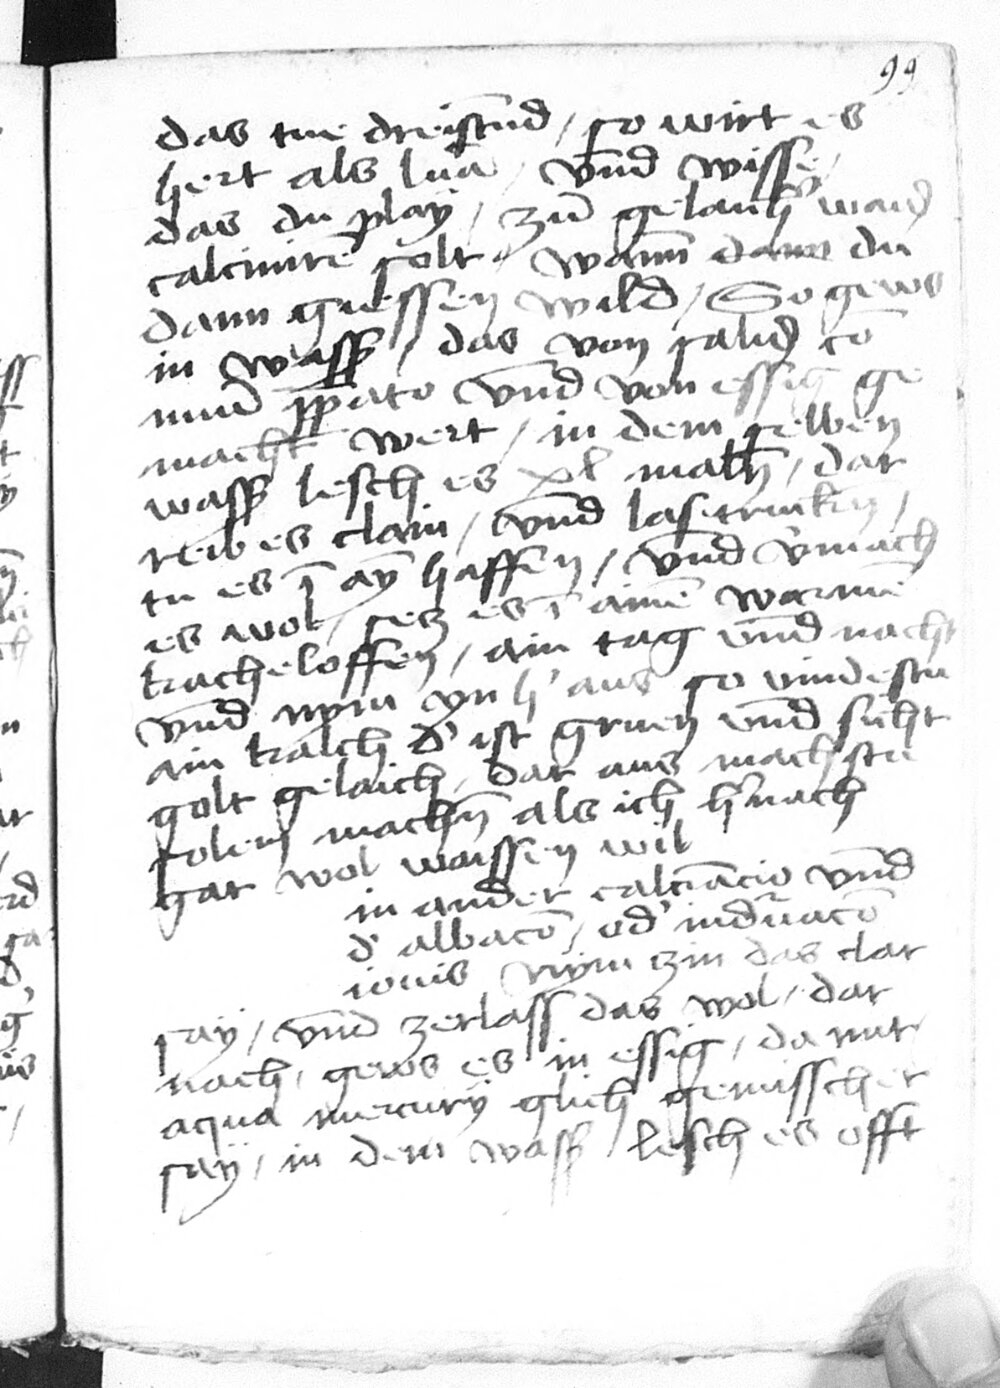 99
das tue dreistūnd / so wirt es
hert als lūa / vnnd wisse /
das du play / zū gelauch
calciniren̄ solt / wann dann du
dann giessen wild / So gews
in wasß / das von saliß cō
mūī ꝑꝑato vnnd von essig ge
macht wert / in dem selben
wasß lesch es xl maln̄ / dar
reib es clain / vnnd las trucken̄ /
tu es ī ay haffen / vnnd v̓mach
es wol / secz es ī ainē warmē
kacheloffen / ain tag vnnd nacht
vnnd nym yn h̓ aus so vindestu
ain kalch d̓ ist gruen vnnd sicht
golt geleich / dar aus machstu
solem machn̄ als ich h̓nach
gar wol waissen wil
in ander calcīacio vnnd
d̓ albacō / od̓ induracō
iouis Nym zin das clar
say / vnnd zerlass das wol / dar
nach / gews es in essig / da mit
aqua mercury glich gemisschet
say / in dem wasß / lesch es offt